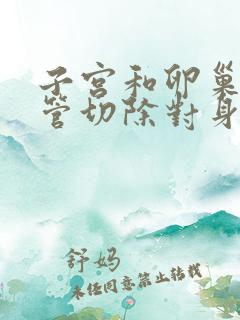 子宮和卵巢
管切除對身
舒妈
未经同意禁止转载